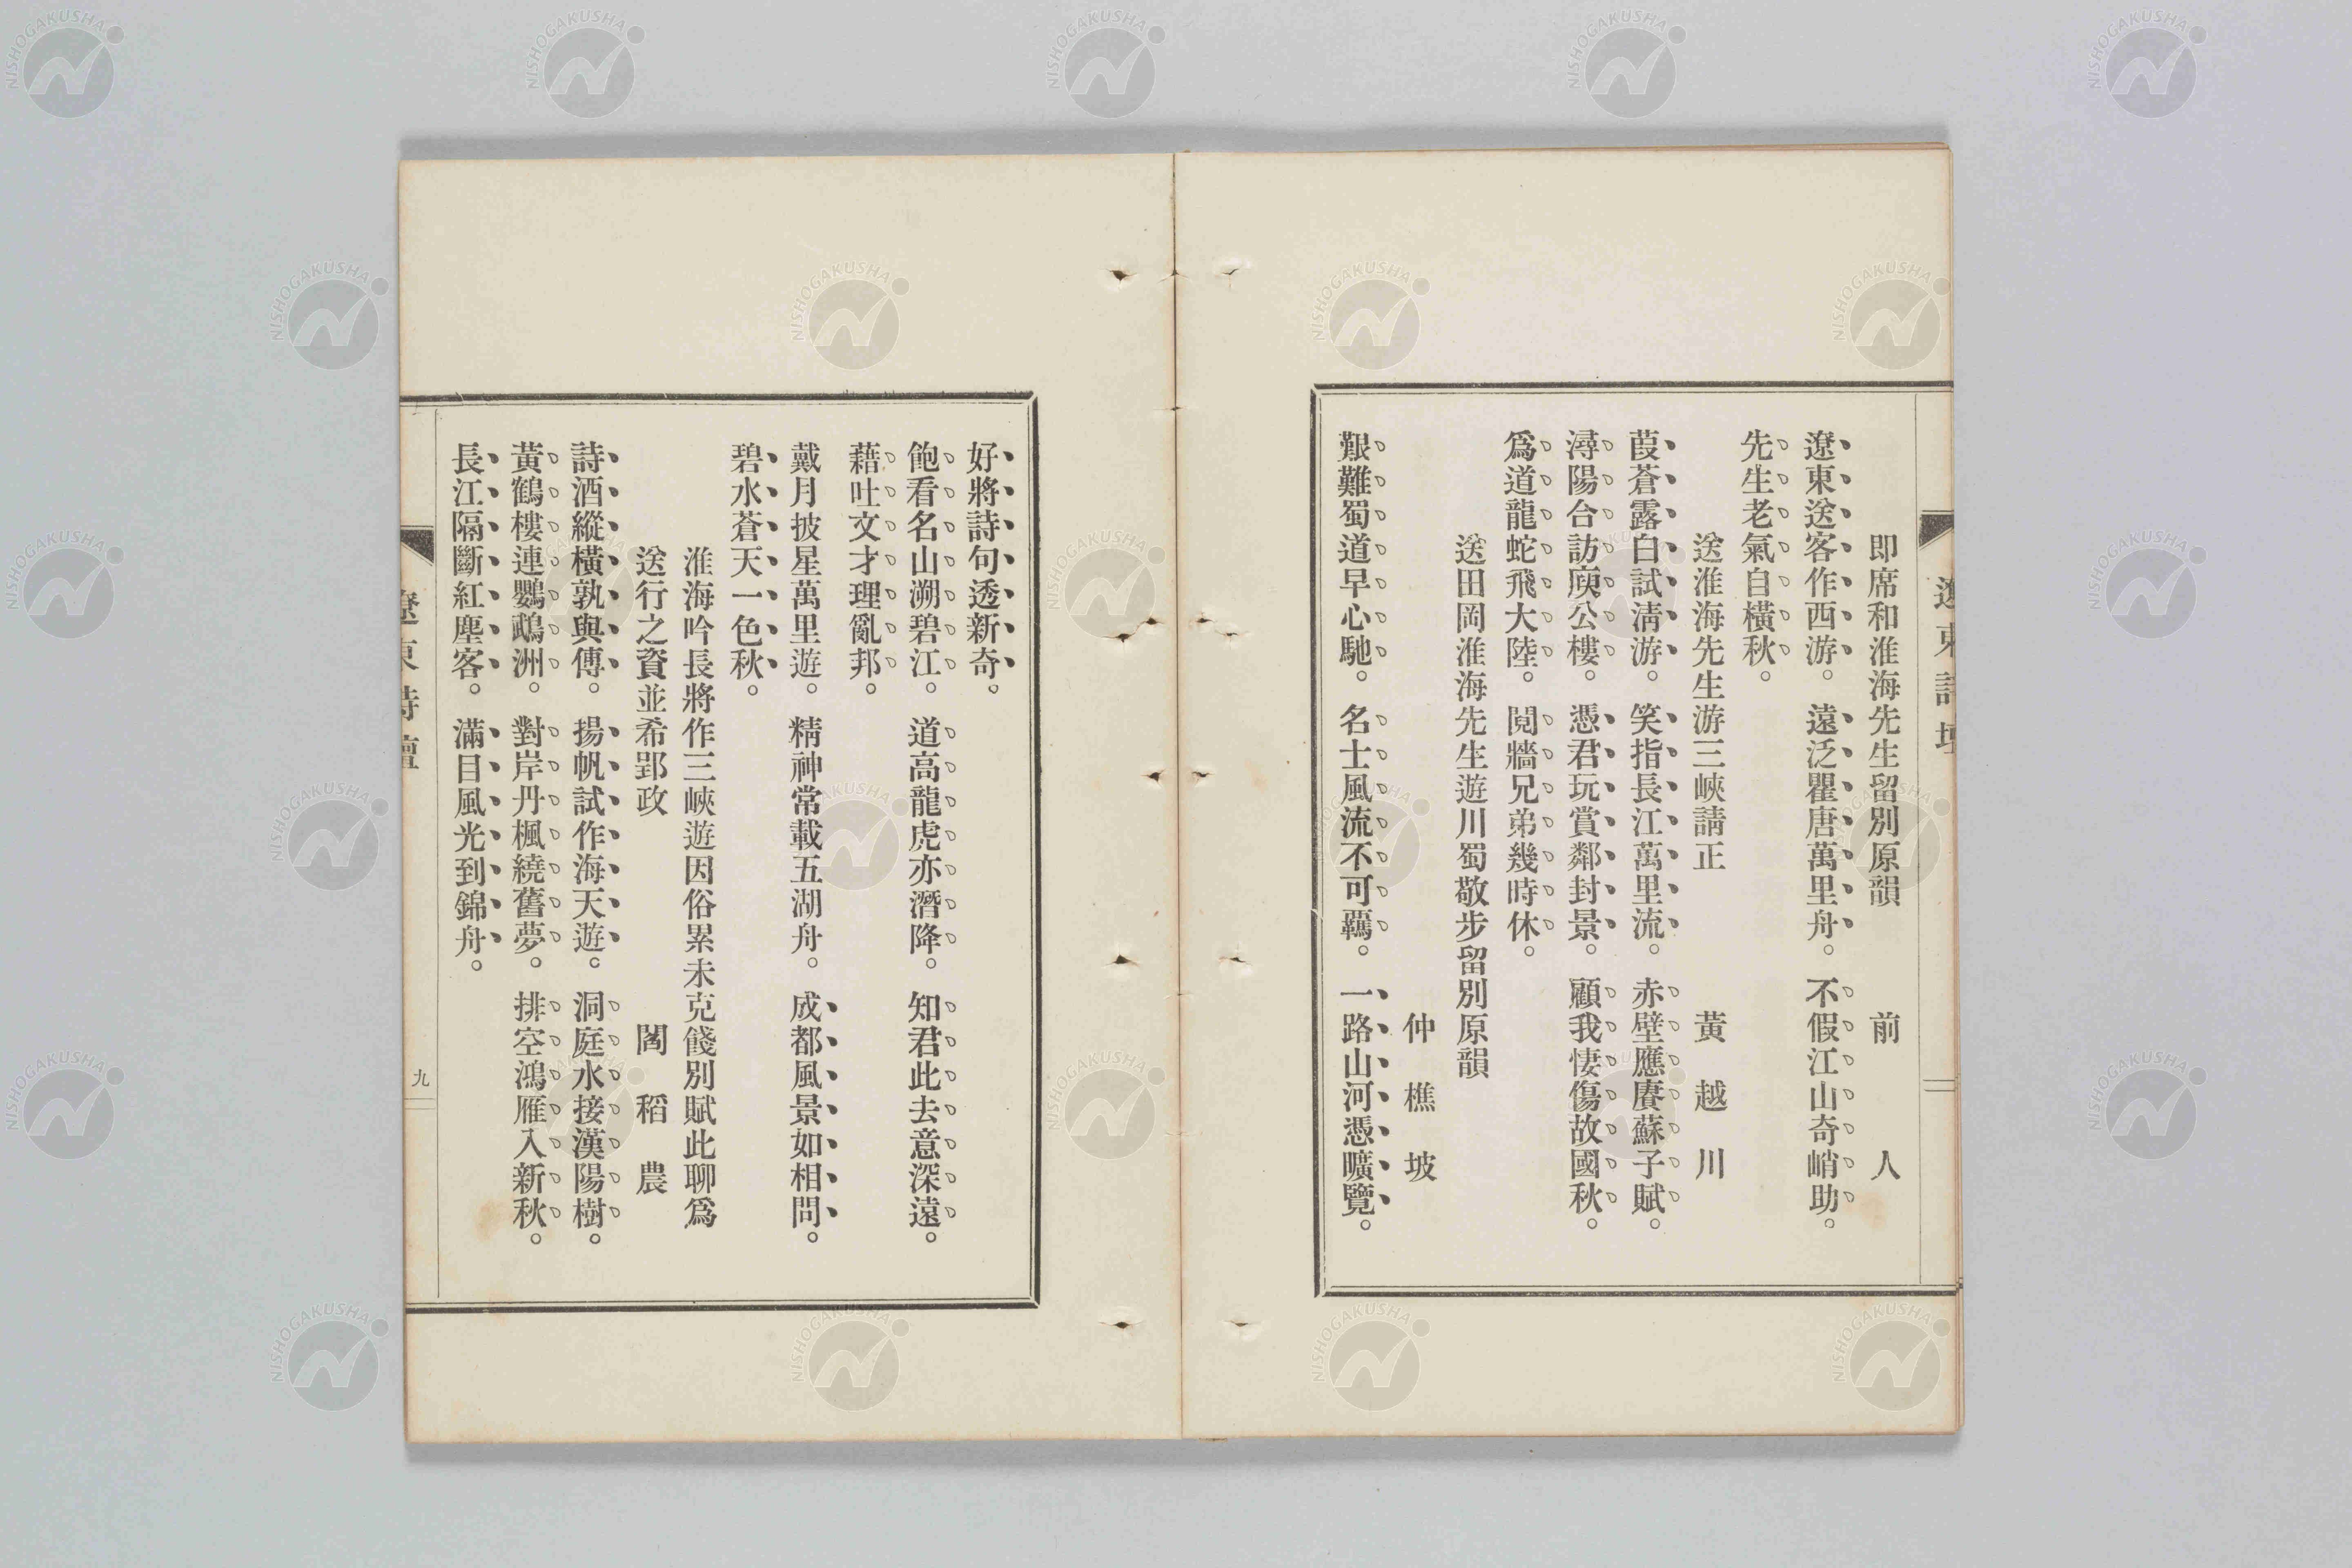 即席和淮海先生留別原韻 前人
遼東送客作西游。遠泛瞿唐萬里舟。不假江山奇峭助。
先生老氣自橫秋。
送淮海先生游三峽請正 黃越川
葭蒼露白試淸游。笑指長江萬里流。赤壁應賡蘇子賦。
潯陽合訪庾公樓。憑君玩賞鄰封景。顧我悽傷故國秋。
爲道龍蛇飛大陸。鬩牆兄弟幾時休。
送田岡淮海先生遊川蜀敬步留別原韻
仲樵坡
艱難蜀道早心馳。名士風流不可羈。一路山河憑曠覽。
好將詩句透新奇。
飽看名山溯碧江。道高龍虎亦潛降。知君此去意深遠。
藉吐文才理亂邦。
戴月披星萬里遊。精神常載五湖舟。成都風景如相問。
碧水蒼天一色秋。
淮海吟長將作三峽遊因俗累未克餞別賦此聊爲
送行之資並希郢政 閻稻農
詩酒縱橫孰與儔。揚帆試作海天遊。洞庭水接漢陽樹。
黃鶴樓連鸚鵡洲。對岸丹楓繞舊夢。排空鴻雁入新秋。
長江隔斷紅塵客。滿目風光到錦舟。
遼東詩壇
九
NISHOGAKUSHA